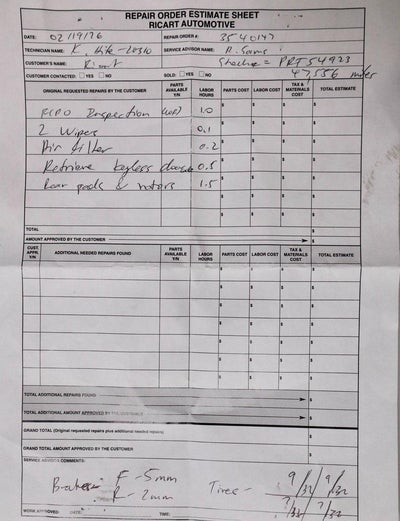 REPAIR ORDER ESTIMATE SHEET
RICART AUTOMOTIVE
DATE: 02/19/26 REPAIR ORDER #: 3540147
TECHNICIAN NAME: K. SERVICE ADVISOR NAME: R.
CUSTOMER'S NAME: Ricart Stock# = PRT54923
CUSTOMER CONTACTED: YES NO SOLD: YES NO 47,556 miles
ORIGINAL REQUESTED REPAIRS BY THE CUSTOMER PARTS AVAILABLE Y/N LABOR HOURS PARTS COST LABOR COST TAX & MATERIALS COST TOTAL ESTIMATE
Inspection 1.0 $ $ $ $
2 Wipes 0.1 $ $ $ $
Air filter 0.2 $ $ $ $
Retrieve keyless 0.5 $ $ $ $
Rear pads & rotors 1.5 $ $ $ $
$ $ $ $
TOTAL $
AMOUNT APPROVED BY THE CUSTOMER $
CUST. APPR. Y/N ADDITIONAL NEEDED REPAIRS FOUND PARTS AVAILABLE Y/N LABOR HOURS PARTS COST LABOR COST TAX & MATERIALS COST TOTAL ESTIMATE
$ $ $ $
$ $ $ $
$ $ $ $
$ $ $ $
$ $ $ $
$ $ $ $
$ $ $ $
TOTAL ADDITIONAL REPAIRS FOUND $
TOTAL ADDITIONAL AMOUNT APPROVED BY THE CUSTOMER $
GRAND TOTAL (Original requested repairs plus additional needed repairs) $
GRAND TOTAL AMOUNT APPROVED BY THE CUSTOMER $
SERVICE ADVISOR COMMENTS:
F - 5mm Tires - 9/32 9/32
R - 2mm 7/32 7/32
WORK APPROVED: DATE: TIME: